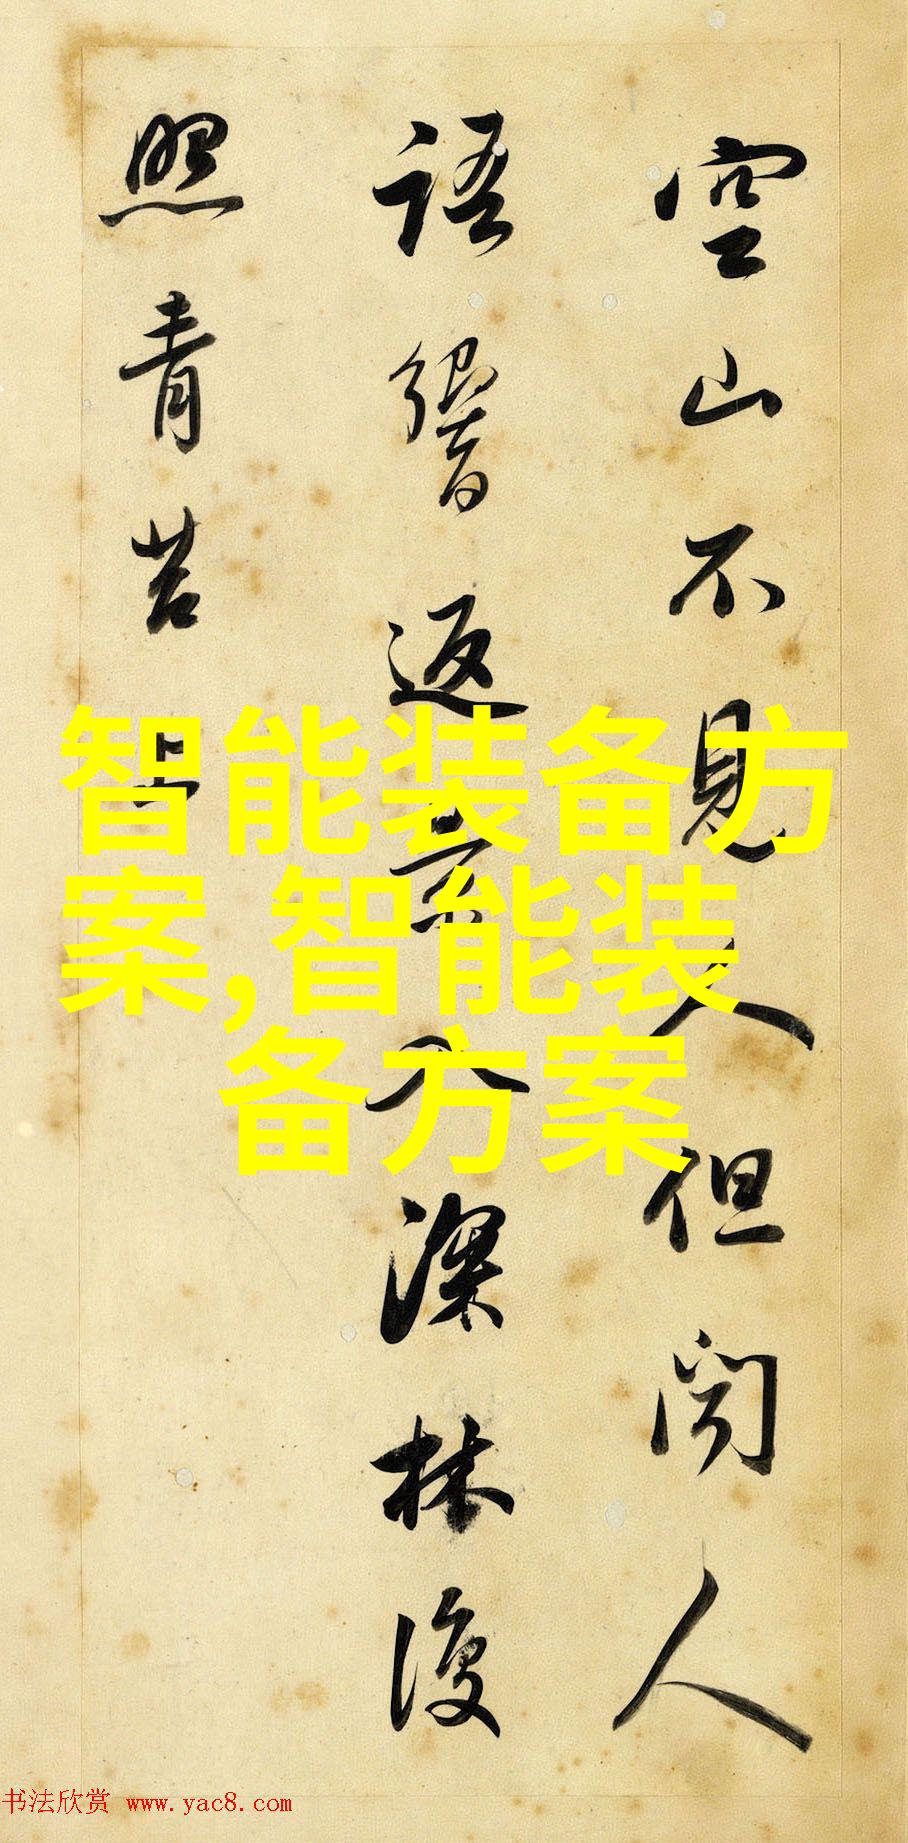 空山不見人但闻人
語響返景入深林復
照青苔上
智能装备方
案,智能装
备方案
书法欣赏 www.yac8.com